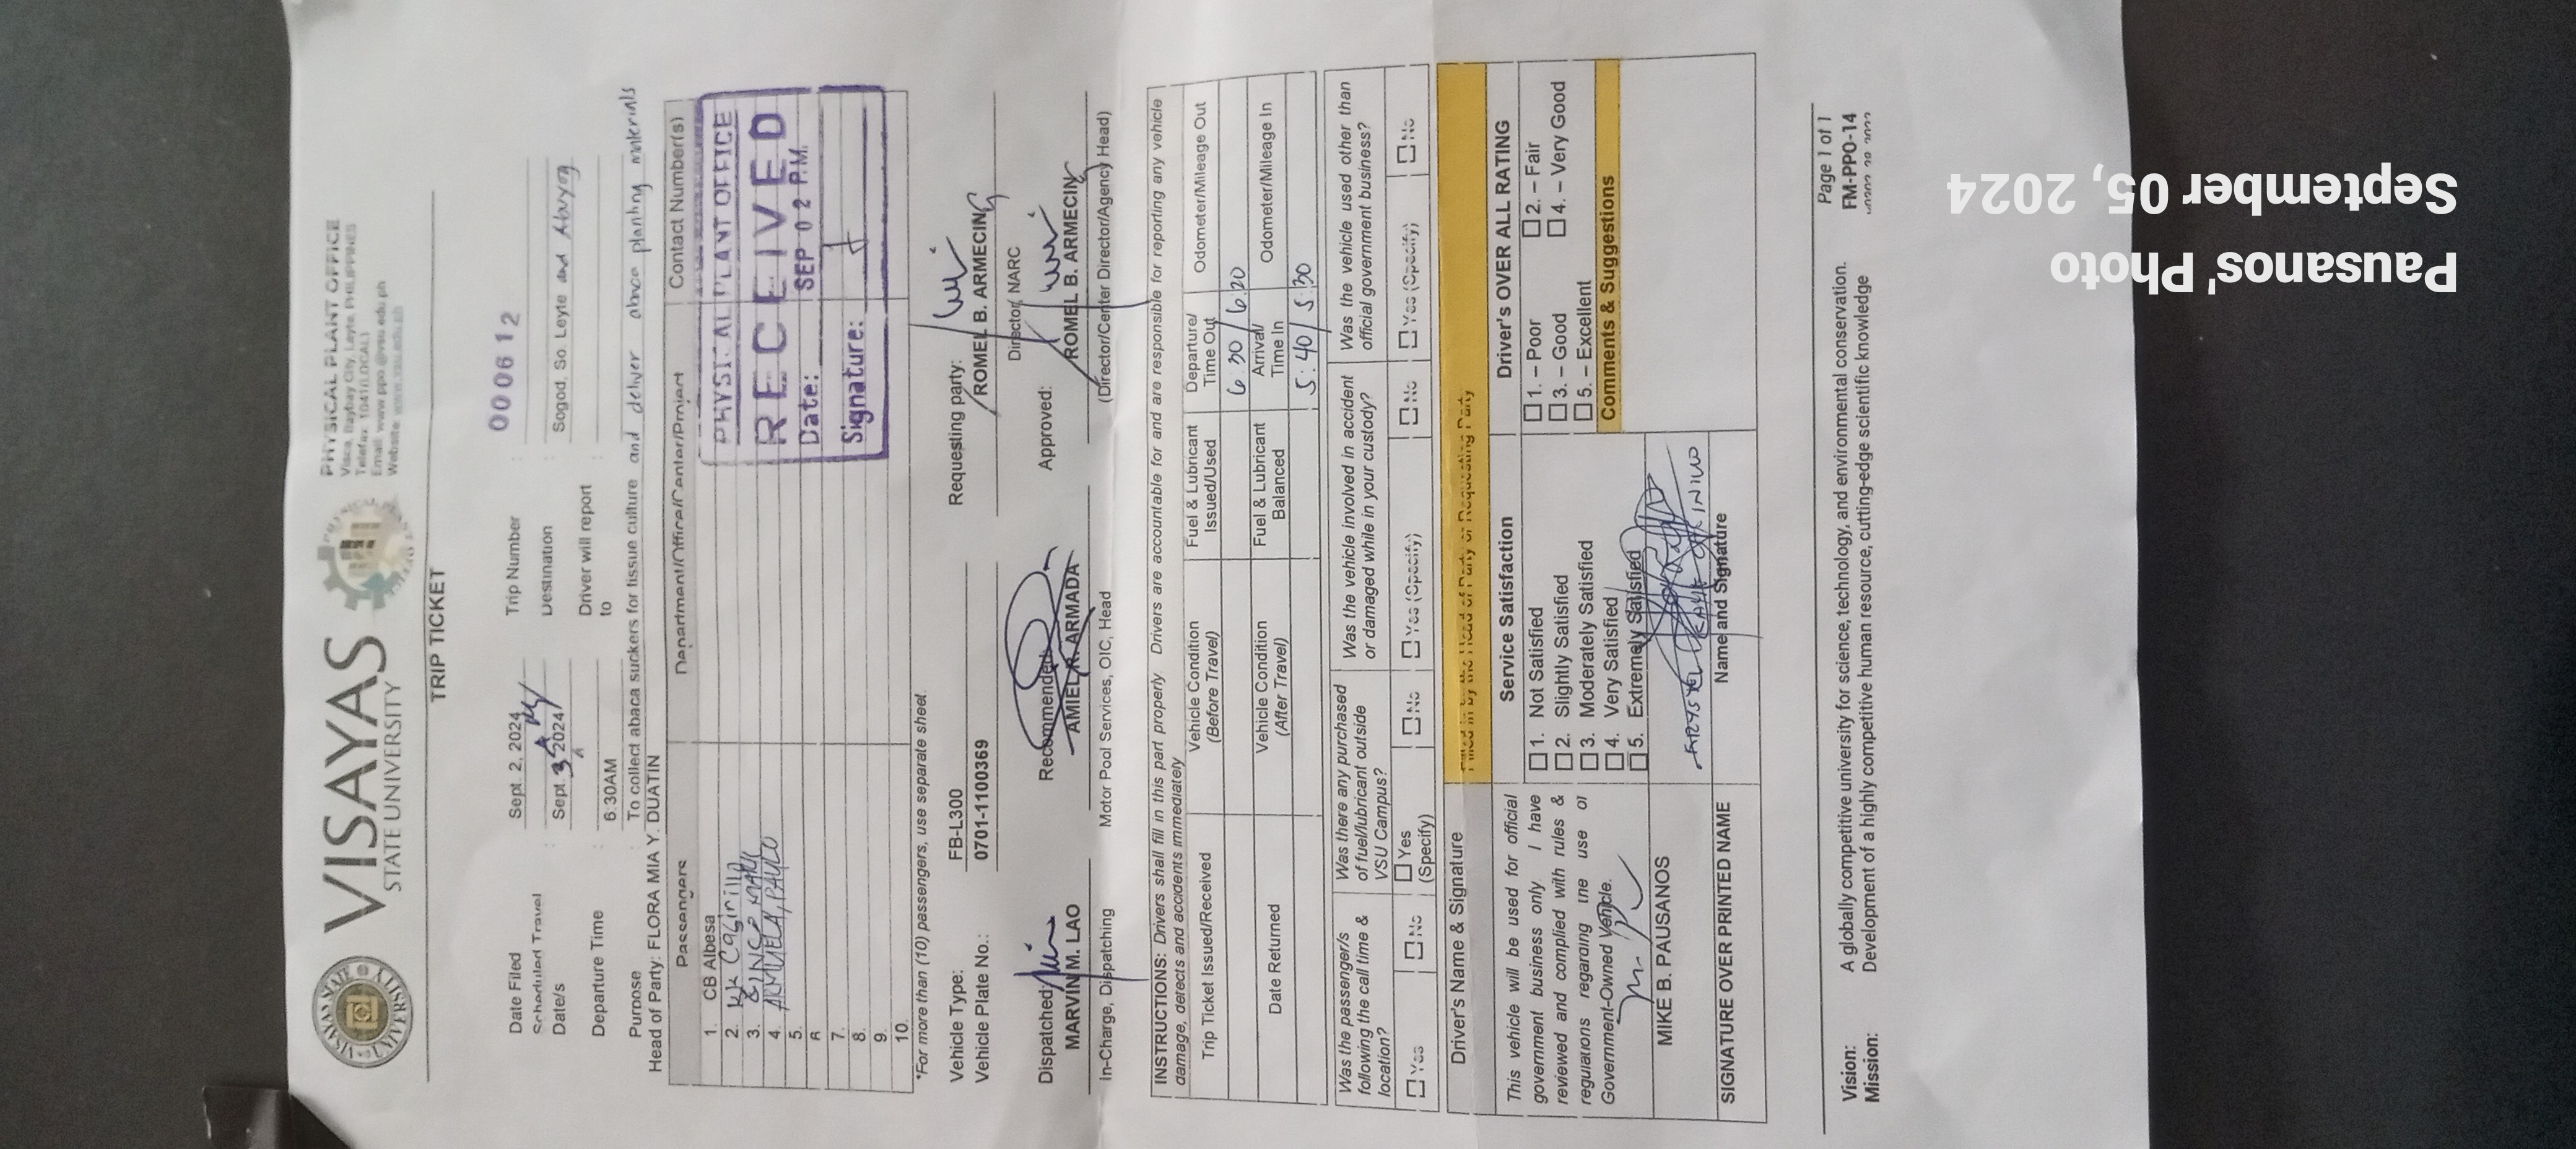 VISAYAS
STATE UNIVERSITY
PHYSICAL PLANT OFFICE
Visca, Baybay City, Leyte, PHILIPPINES
Telefax: 1041(LOCAL)
Email: www.ppo@vsu.edu.ph
Website: www.vsu.edu.ph
TRIP TICKET
000612
Date Filed : Sept. 2, 2024 Trip Number :
Scheduled Travel Date/s : Sept. 3 2024 Destination : Sogod, So. Leyte and Abuyog
Departure Time : 6:30AM Driver will report to :
Purpose : To collect abaca suckers for tissue culture and deliver abaca planting materials
Head of Party: FLORA MIA Y. DUATIN
Passengers Department/Office/Center/Project Contact Number(s)
1. CB Albesa
2. KK Cagirilla
3.
4. ARMUELA, PAULO
5.
6
7.
8.
9.
10.
PHYSICAL PLANT OFFICE
RECEIVED
Date: SEP 02 P.M.
Signature:
*For more than (10) passengers, use separate sheet.
Vehicle Type: FB-L300
Vehicle Plate No.: 0701-1100369
Requesting party:
ROMEL B. ARMECIN
Director, NARC
Dispatched:
MARVIN M. LAO
In-Charge, Dispatching
Recommended:
AMIEL R. ARMADA
Motor Pool Services, OIC, Head
Approved:
ROMEL B. ARMECIN
(Director/Center Director/Agency Head)
INSTRUCTIONS: Drivers shall fill in this part properly. Drivers are accountable for and are responsible for reporting any vehicle
damage, detects and accidents immediately
Trip Ticket Issued/Received Vehicle Condition (Before Travel) Fuel & Lubricant Issued/Used Departure/ Time Out Odometer/Mileage Out
6:30 / 6:20
Date Returned Vehicle Condition (After Travel) Fuel & Lubricant Balanced Arrival/ Time In Odometer/Mileage In
5:40 / 5:30
Was the passenger/s following the call time & location?
Yes No
Was there any purchased of fuel/lubricant outside VSU Campus?
Yes (Specify) No
Was the vehicle involved in accident or damaged while in your custody?
Yes (Specify) No
Was the vehicle used other than official government business?
Yes (Specify) No
Driver's Name & Signature
Filled in by the Head of Party or Requesting Party
This vehicle will be used for official
government business only. I have
reviewed and complied with rules &
regulations regarding the use of
Government-Owned Vehicle.
MIKE B. PAUSANOS
SIGNATURE OVER PRINTED NAME
Service Satisfaction
1. Not Satisfied
2. Slightly Satisfied
3. Moderately Satisfied
4. Very Satisfied
5. Extremely Satisfied
Name and Signature
Driver's OVER ALL RATING
1. – Poor 2. – Fair
3. – Good 4. – Very Good
5. – Excellent
Comments & Suggestions
Vision: A globally competitive university for science, technology, and environmental conservation.
Mission: Development of a highly competitive human resource, cutting-edge scientific knowledge
Page 1 of 1
FM-PPO-14
Pausanos' Photo
September 05, 2024